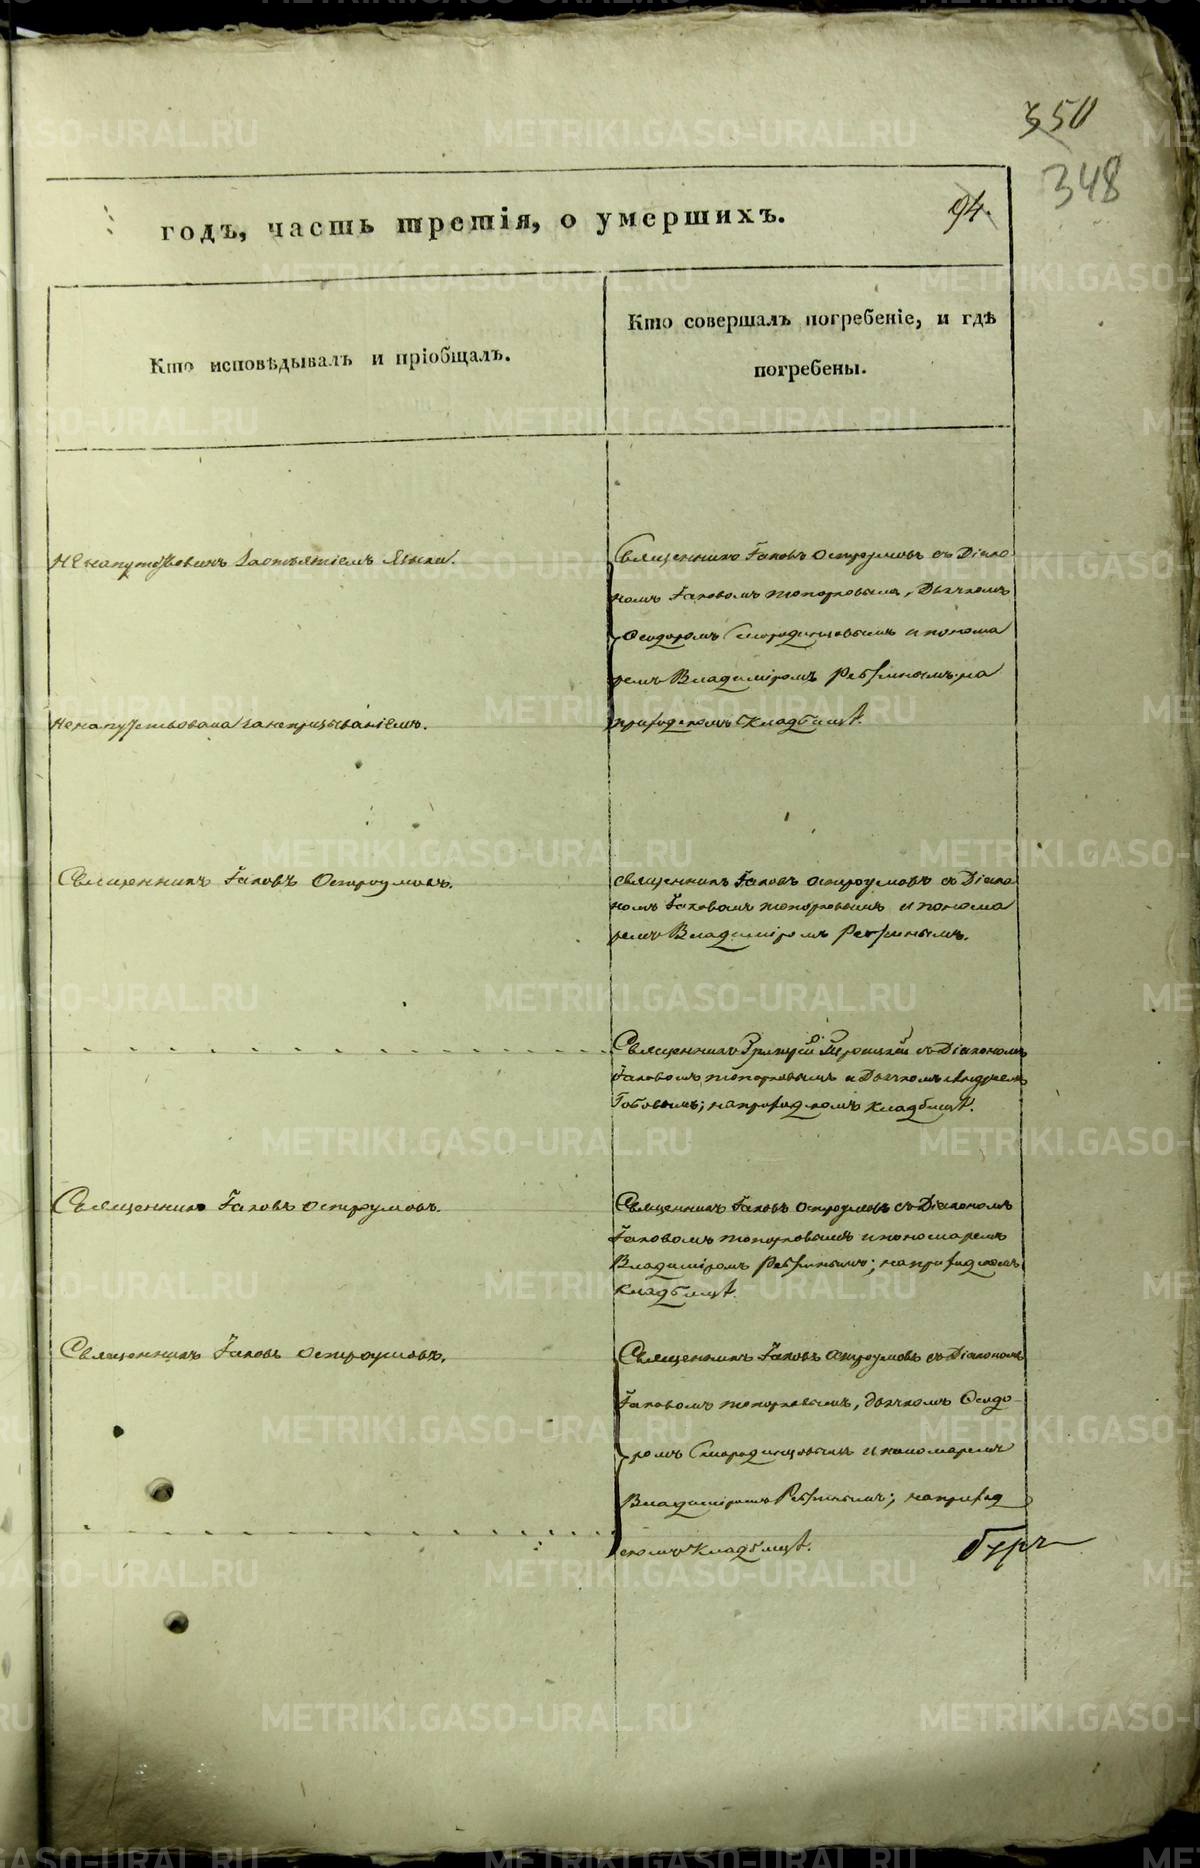 350
348
94.
годъ, часть третія, о умершихъ.
Кто исповѣдывалъ и пріобщалъ.
Кто совершалъ погребеніе, и гдѣ
погребены.
Священникъ Іаковъ Остроумовъ съ Діако
номъ Іаковомъ Топорковымъ, Дьячкомъ
Ѳеодоромъ Смородинцовымъ и понома
ремъ Владиміромъ на
приходскомъ кладбищѣ.
не напутствованъ за отъятіемъ языка.
не напутствована за непризываніемъ.
Священникъ Іаковъ Остроумовъ.
священникъ Іаковъ Остроумовъ съ Діако
номъ Іаковомъ Топорковымъ и понома
ремъ Владиміромъ
Священникъ съ Діакономъ
Іаковомъ Топорковымъ и Дьячкомъ Андреемъ
на приходскомъ кладбищѣ.
Священникъ Іаковъ Остроумовъ.
Священникъ Іаковъ Остроумовъ съ Діакономъ
Іаковомъ Топорковымъ и пономаремъ
Владиміромъ на приходскомъ
кладбищѣ.
Священникъ Іаковъ Остроумовъ.
Священникъ Іаковъ Остроумовъ съ Діакономъ
Іаковомъ Топорковымъ, дьячкомъ Ѳеодо-
ромъ Смородинцовымъ и пономаремъ
Владиміромъ на приход
скомъ кладбищѣ.
METRIKI.GASO-URAL.RU